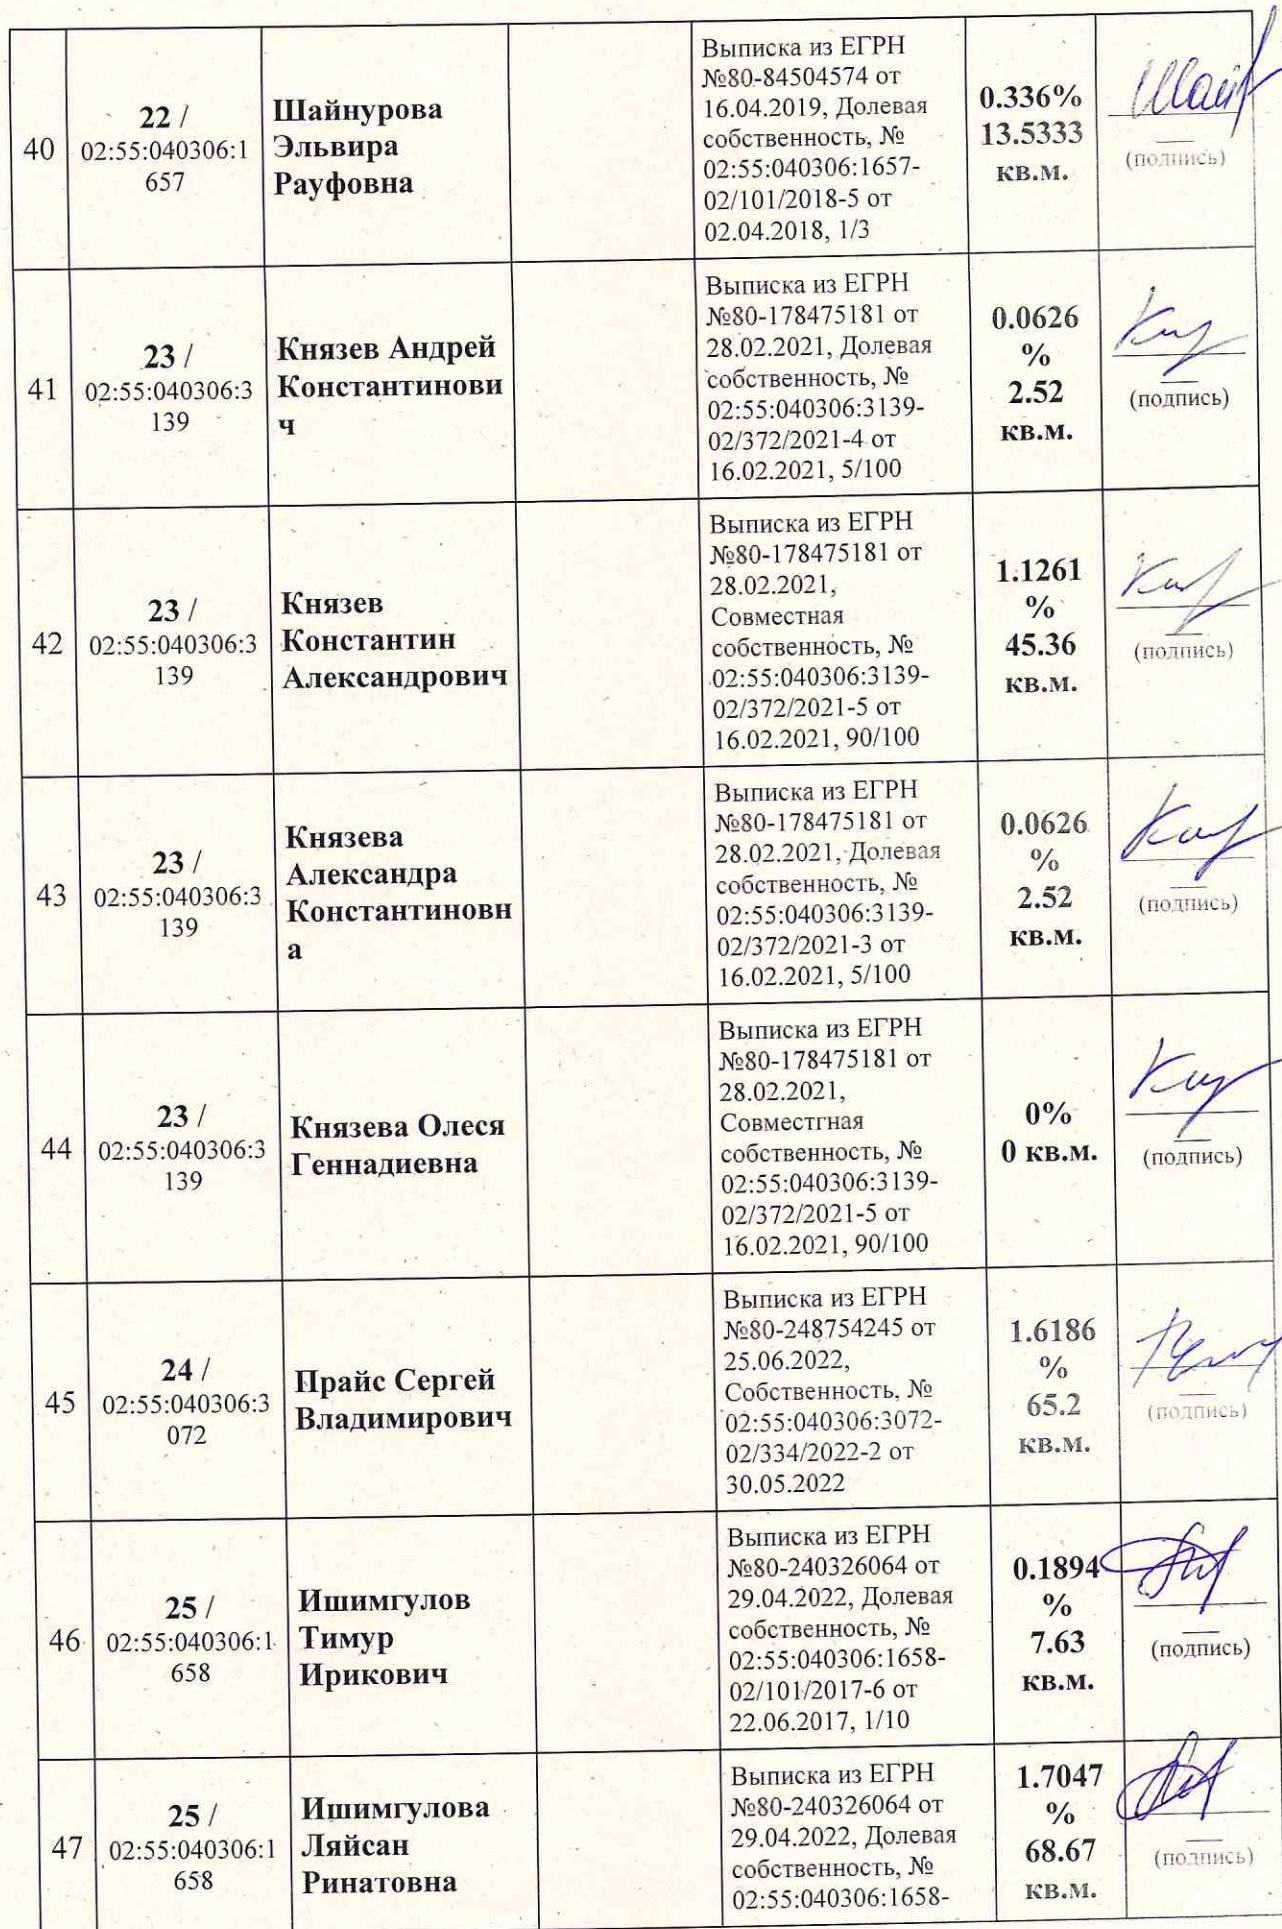 40
22 /
02:55:040306:1
657
Шайнурова
Эльвира
Рауфовна
Выписка из ЕГРН
№80-84504574 от
16.04.2019, Долевая
собственность, №
02:55:040306:1657-
02/101/2018-5 от
02.04.2018, 1/3
0.336%
13.5333
кв.м.
(подпись)
41
23 /
02:55:040306:3
139
Князев Андрей
Константинови
ч
Выписка из ЕГРН
№80-178475181 от
28.02.2021, Долевая
собственность, №
02:55:040306:3139-
02/372/2021-4 от
16.02.2021, 5/100
0.0626
%
2.52
кв.м.
(подпись)
42
23 /
02:55:040306:3
139
Князев
Константин
Александрович
Выписка из ЕГРН
№80-178475181 от
28.02.2021,
Совместная
собственность, №
02:55:040306:3139-
02/372/2021-5 от
16.02.2021, 90/100
1.1261
%
45.36
кв.м.
(подпись)
43
23 /
02:55:040306:3
139
Князева
Александра
Константиновн
а
Выписка из ЕГРН
№80-178475181 от
28.02.2021, Долевая
собственность, №
02:55:040306:3139-
02/372/2021-3 от
16.02.2021, 5/100
0.0626
%
2.52
кв.м.
(подпись)
44
23 /
02:55:040306:3
139
Князева Олеся
Геннадиевна
Выписка из ЕГРН
№80-178475181 от
28.02.2021,
Совместгная
собственность, №
02:55:040306:3139-
02/372/2021-5 от
16.02.2021, 90/100
0%
0 кв.м.
(подпись)
45
24 /
02:55:040306:3
072
Прайс Сергей
Владимирович
Выписка из ЕГРН
№80-248754245 от
25.06.2022,
Собственность, №
02:55:040306:3072-
02/334/2022-2 от
30.05.2022
1.6186
%
65.2
кв.м.
(подпись)
46
25 /
02:55:040306:1
658
Ишимгулов
Тимур
Ирикович
Выписка из ЕГРН
№80-240326064 от
29.04.2022, Долевая
собственность, №
02:55:040306:1658-
02/101/2017-6 от
22.06.2017, 1/10
0.1894
%
7.63
кв.м.
(подпись)
47
25 /
02:55:040306:1
658
Ишимгулова
Ляйсан
Ринатовна
Выписка из ЕГРН
№80-240326064 от
29.04.2022, Долевая
собственность, №
02:55:040306:1658-
1.7047
%
68.67
кв.м.
(подпись)